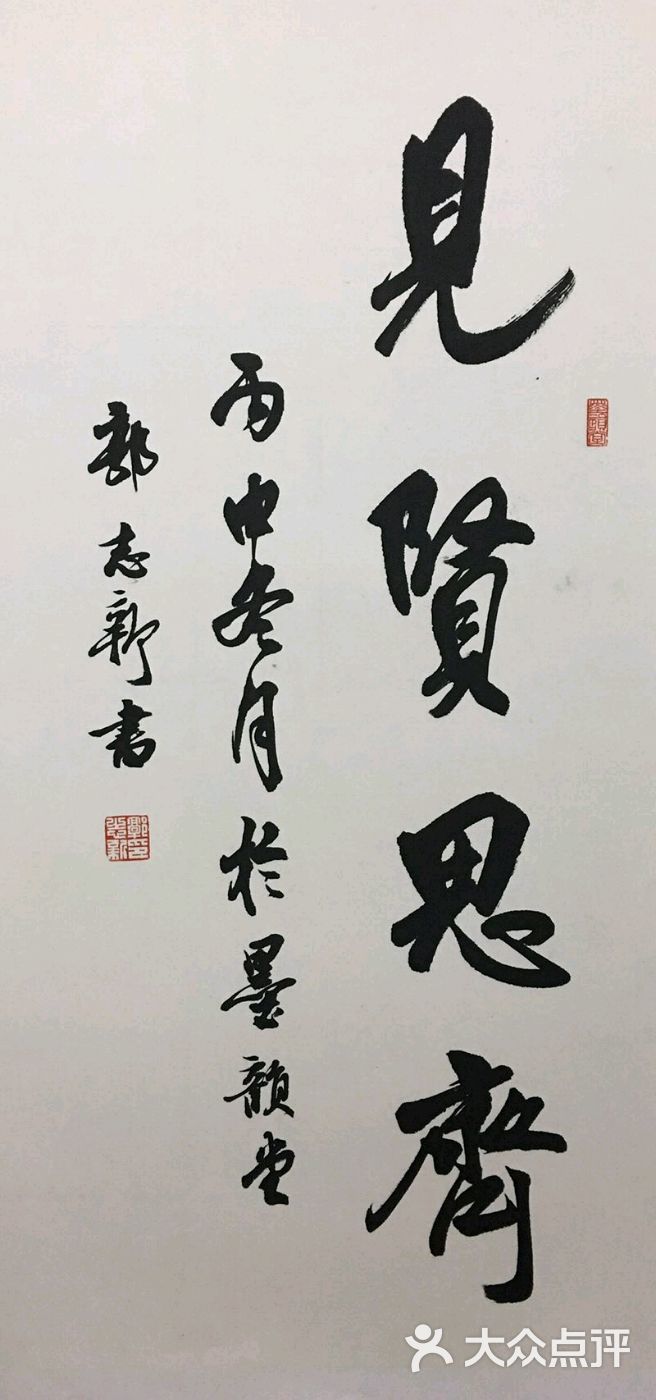 見賢思齊
丙申冬月於墨韻堂
郭志新書
大众点评